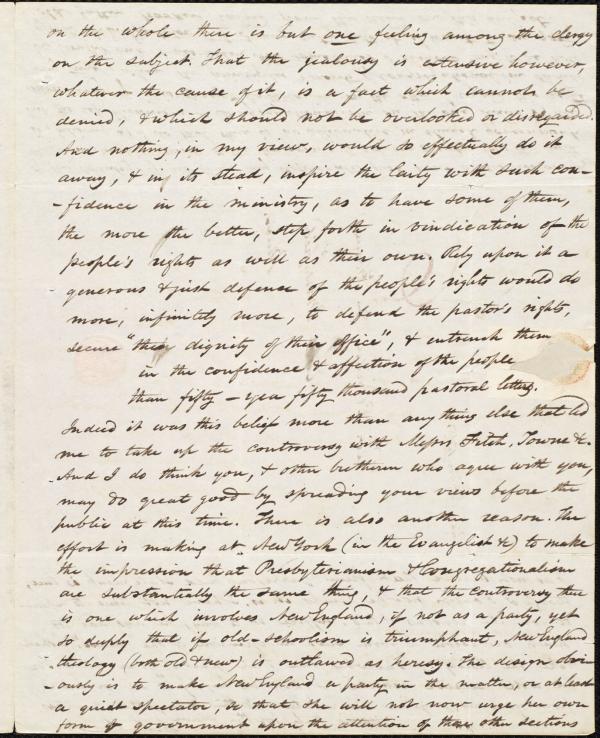 on the whole there is but one feeling among the clergy
on the subject. That the jealousy is extensive however,
whatever the cause of it, is a fact which cannot be
denied, & which should not be overlooked or disregarded.
And nothing, in my view, would so effectually do it
away, & in its stead, inspire the laity with such con-
-fidence in the ministry, as to have some of them,
the more the better, step forth in vindication of the
people's rights as well as their own. Rely upon it a
generous & just defence of the people's rights would do
more, infinitely more, to defend the pastor's rights,
secure "the dignity of their office", & entrench them
in the confidence & affection of the people
than fifty - yea fifty thousand pastoral letters.
Indeed it was this belief more than any thing else that led
me to take up the controversy with Messrs Fitch, Towne &c.
And I do think you, & other brethren who agree with you,
may do great good by spreading your views before the
public at this time. There is also another reason. The
effort is making at New York (in the Evangelist &c) to make
the impression that Presbyterianism & Congregationalism
are substantially the same thing, & that the controversy there
is one which involves New England, if not as a party, yet
so deeply that if old-schoolism is triumphant, New England
theology (both old & new) is outlawed as heresy. The design obvi-
-ously is to make New England a party in the matter, or at least
a quiet spectator, so that she will not now urge her own
form of government upon the attention of these other sections